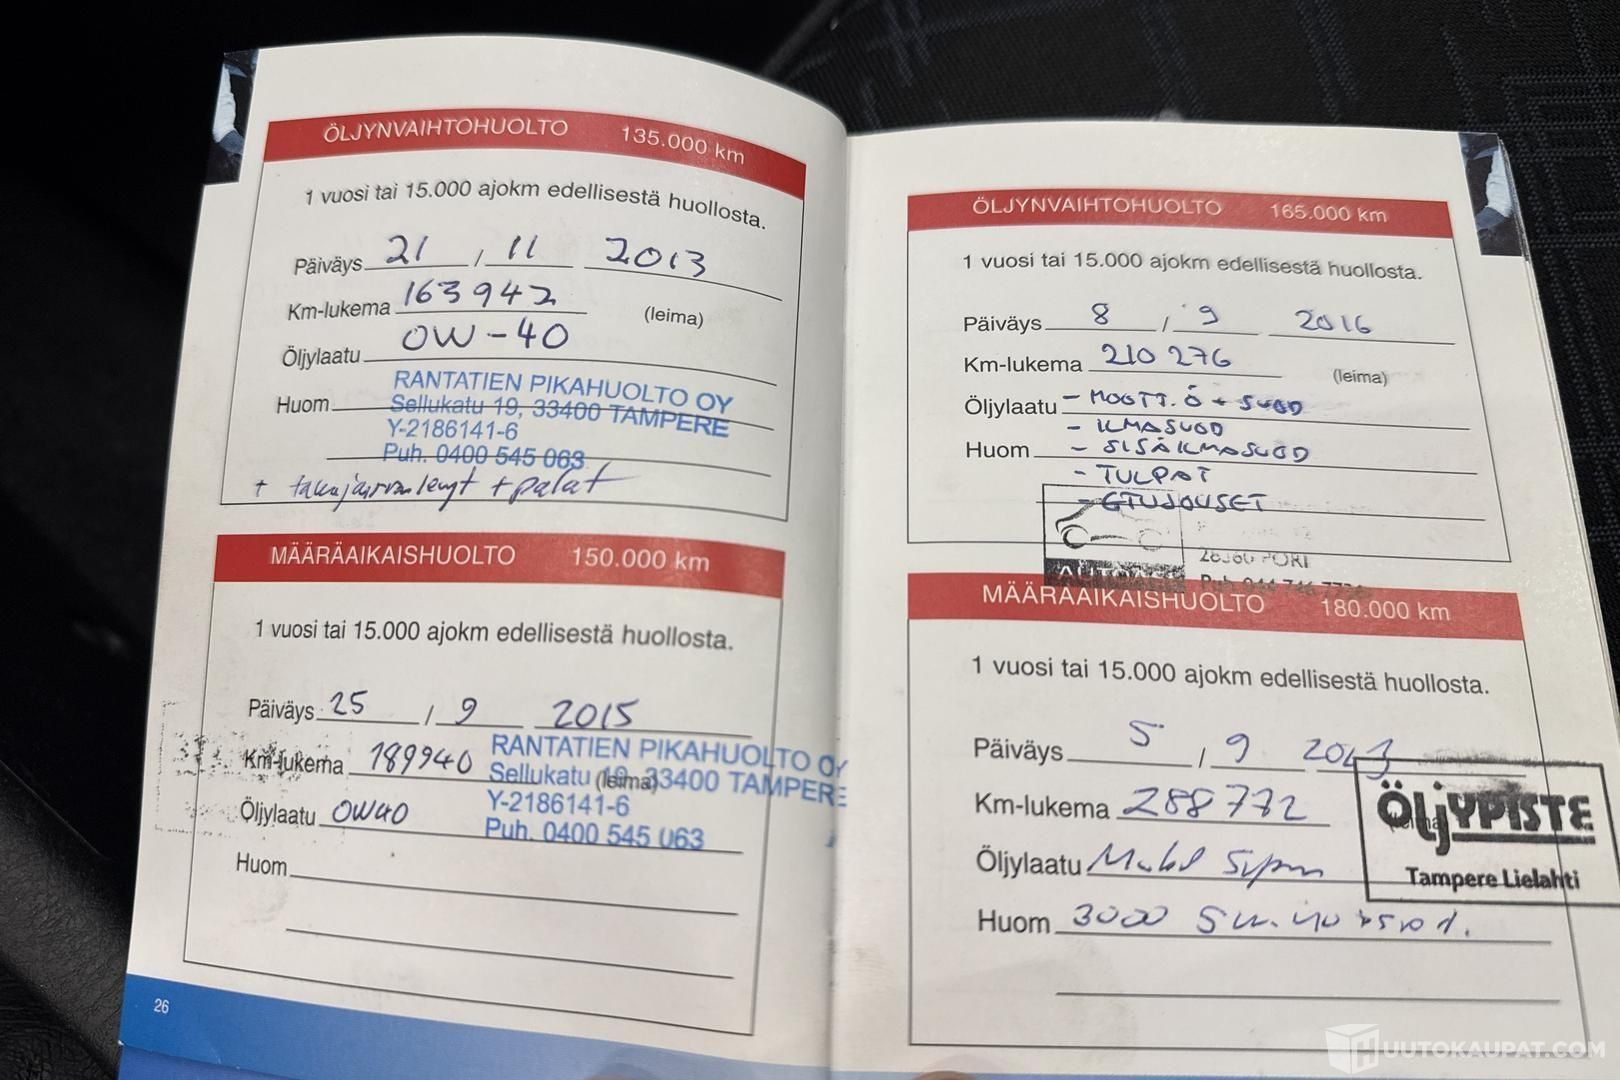 ÖLJYNVAIHTOHUOLTO 135.000 km
1 vuosi tai 15.000 ajokm edellisestä huollosta.
Päiväys 21 / 11 2013
Km-lukema 163942 (leima)
Öljylaatu 0W-40
Huom
RANTATIEN PIKAHUOLTO OY
Sellukatu 19, 33400 TAMPERE
Y-2186141-6
Puh. 0400 545 063
+ takajarrunlevyt + palat
MÄÄRÄAIKAISHUOLTO 150.000 km
1 vuosi tai 15.000 ajokm edellisestä huollosta.
Päiväys 25 / 9 2015
Km-lukema 189940 (leima)
RANTATIEN PIKAHUOLTO OY
Sellukatu 19, 33400 TAMPERE
Y-2186141-6
Puh. 0400 545 063
Öljylaatu 0W40
Huom
26
ÖLJYNVAIHTOHUOLTO 165.000 km
1 vuosi tai 15.000 ajokm edellisestä huollosta.
Päiväys 8 / 9 2016
Km-lukema 210 276 (leima)
Öljylaatu - MOOTT.Ö + SUOD
- ILMASUOD
Huom - SISÄILMASUOD
- TULPAT
- ETUJOUSET
28360 PORI
MÄÄRÄAIKAISHUOLTO 180.000 km
1 vuosi tai 15.000 ajokm edellisestä huollosta.
Päiväys 5 / 9 2023
Km-lukema 288772 (leima)
ÖljYPISTE
Tampere Lielahti
Öljylaatu Mobil
Huom 3000 5W.40
HUUTOKAUPAT.COM